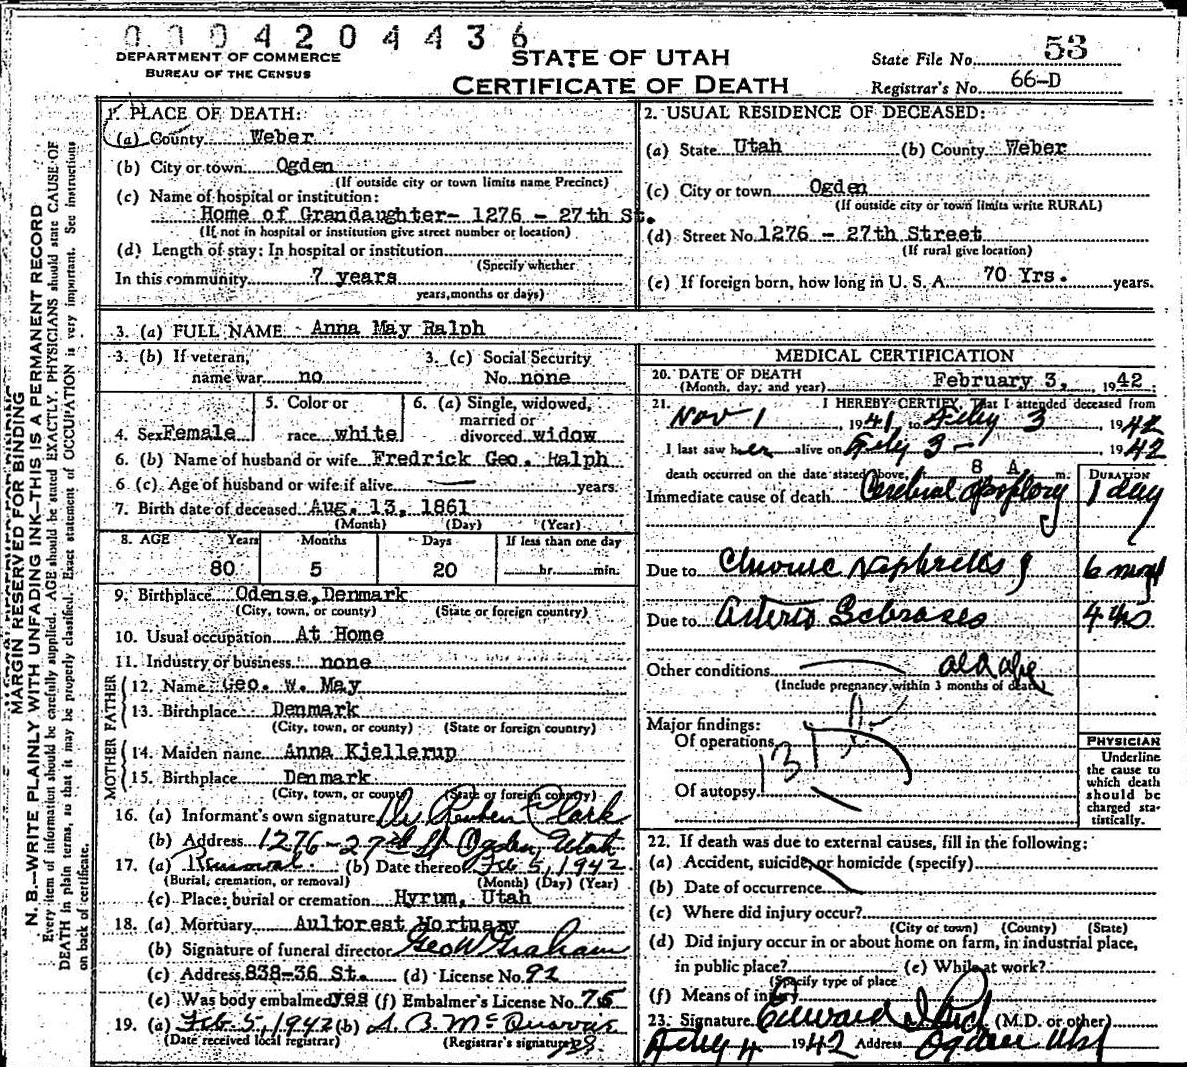 0004204436
DEPARTMENT OF COMMERCE
BUREAU OF THE CENSUS
STATE OF UTAH
CERTIFICATE OF DEATH
State File No. 53
Registrar's No. 66-D
MARGIN RESERVED FOR BINDING
N. B.—WRITE PLAINLY WITH UNFADING INK—THIS IS A PERMANENT RECORD
Every item of information should be carefully supplied. AGE should be stated EXACTLY. PHYSICIANS should state CAUSE OF
DEATH in plain terms, so that it may be properly classified. Exact statement of OCCUPATION is very important. See instructions
on back of certificate.
1. PLACE OF DEATH:
(a) County Weber
(b) City or town Ogden
(If outside city or town limits name Precinct)
(c) Name of hospital or institution:
Home of Grandaughter- 1276 - 27th St.
(If not in hospital or institution give street number or location)
(d) Length of stay: In hospital or institution
(Specify whether
In this community 7 years
years, months or days)
2. USUAL RESIDENCE OF DECEASED:
(a) State Utah (b) County Weber
(c) City or town Ogden
(If outside city or town limits write RURAL)
(d) Street No. 1276 - 27th Street
(If rural give location)
(e) If foreign born, how long in U. S. A. 70 Yrs. years.
3. (a) FULL NAME Anna May Ralph
3. (b) If veteran, name war no
3. (c) Social Security No. none
4. Sex Female
5. Color or race white
6. (a) Single, widowed, married or divorced widow
6. (b) Name of husband or wife Fredrick Geo. Ralph
6 (c). Age of husband or wife if alive — years.
7. Birth date of deceased Aug. 13, 1861
(Month) (Day) (Year)
8. AGE Years Months Days If less than one day
80 5 20 hr. min.
9. Birthplace Odense, Denmark
(City, town, or county) (State or foreign country)
10. Usual occupation At Home
11. Industry or business none
FATHER
12. Name Geo. W. May
13. Birthplace Denmark
(City, town, or county) (State or foreign country)
MOTHER
14. Maiden name Anna Kjellerup
15. Birthplace Denmark
(City, town, or county) (State or foreign country)
16. (a) Informant's own signature Reuben Clark
(b) Address 1276-27th St Ogden, Utah
17. (a) Removal (b) Date thereof Feb 5, 1942
(Burial, cremation, or removal) (Month) (Day) (Year)
(c) Place: burial or cremation Hyrum, Utah
18. (a) Mortuary Aultorest Mortuary
(b) Signature of funeral director Geo W Graham
(c) Address 838-36 St. (d) License No. 92
(e) Was body embalmed yes (f) Embalmer's License No. 75
19. (a) Feb. 5, 1942 (b)
(Date received local registrar) (Registrar's signature)
MEDICAL CERTIFICATION
20. DATE OF DEATH
(Month, day, and year) February 3, 1942
21. I HEREBY CERTIFY, That I attended deceased from
Nov 1, 1941, to Feby 3, 1942
I last saw her alive on Feby 3 - 1942
death occurred on the date stated above, at 8 A m.
DURATION
Immediate cause of death Cerebral Apoplexy 1 day
Due to Chronic Nephritis 6
Due to Arterio Sclerosis 4 yrs
Other conditions old age
(Include pregnancy within 3 months of death)
Major findings:
Of operations
Of autopsy
PHYSICIAN
Underline
the cause to
which death
should be
charged sta-
tistically.
22. If death was due to external causes, fill in the following:
(a) Accident, suicide, or homicide (specify)
(b) Date of occurrence
(c) Where did injury occur?
(City or town) (County) (State)
(d) Did injury occur in or about home on farm, in industrial place,
in public place? (e) While at work?
(Specify type of place
(f) Means of injury
23. Signature Edward I Rich (M.D. or other)
Feby 4 1942 Address Ogden Utah